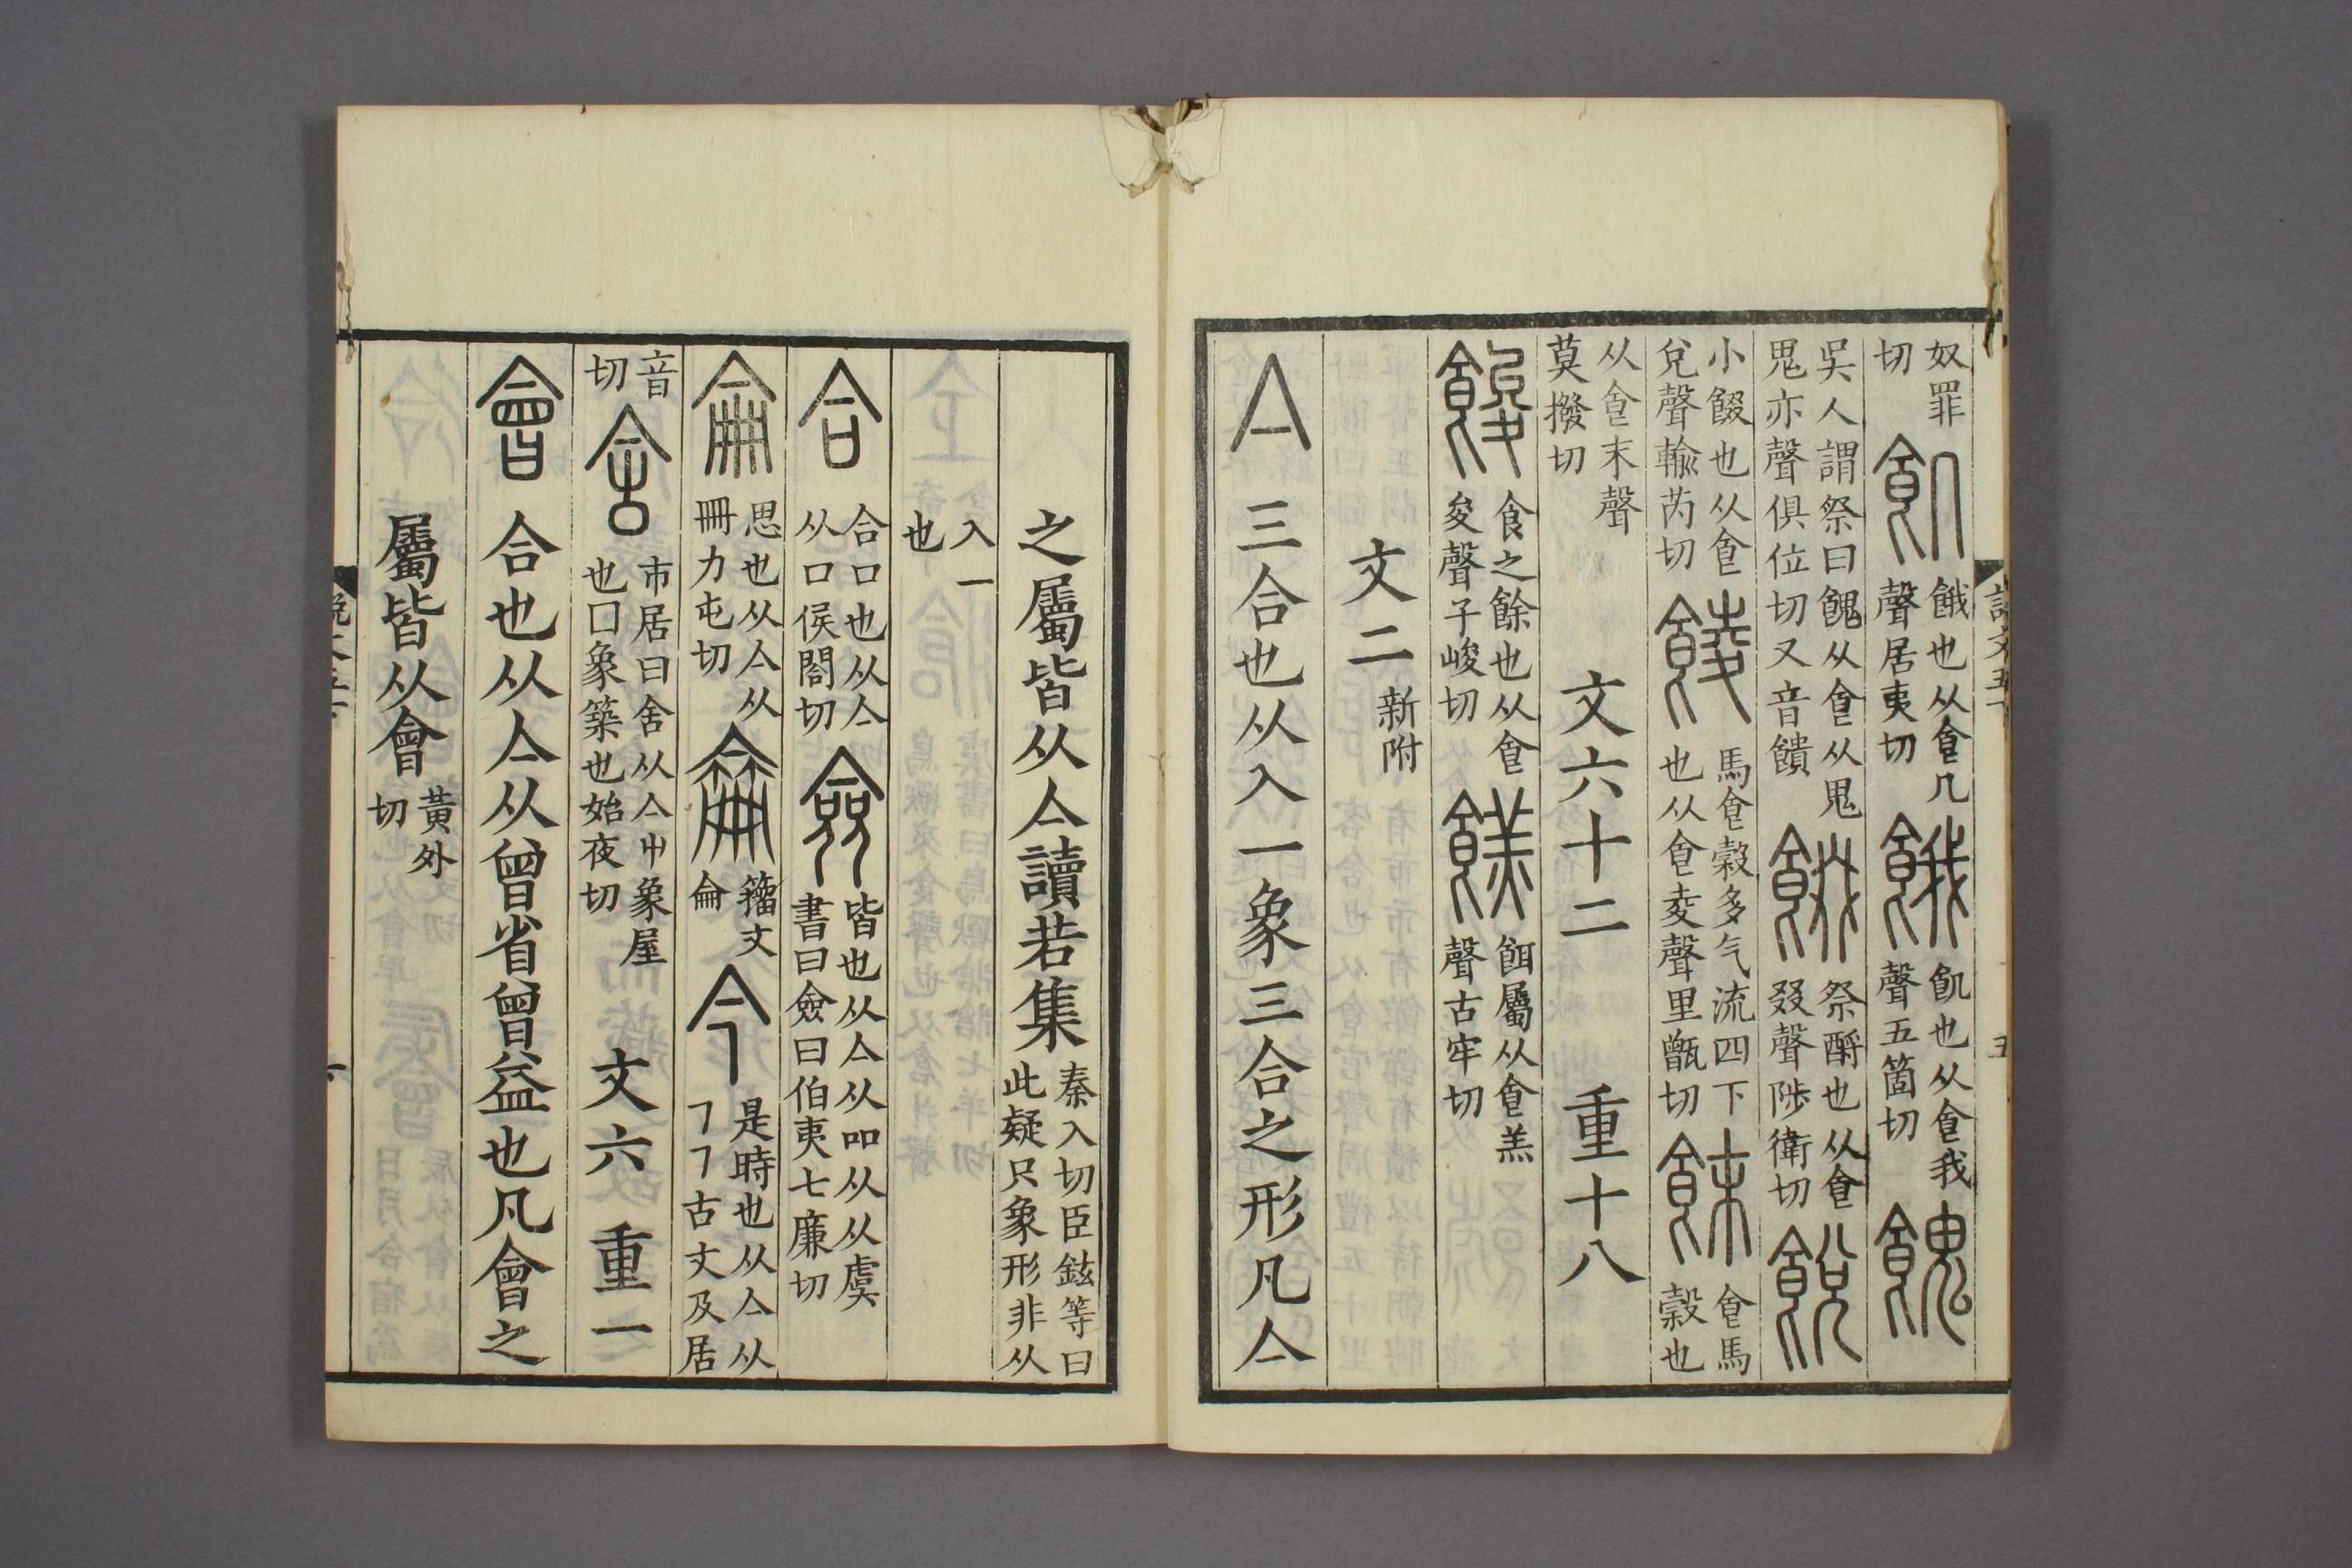 奴罪切 飢 餓也从𩙿几聲居夷切 餓 飢也从𩙿我聲五箇切 餽
吳人謂祭曰餽从𩙿从鬼鬼亦聲俱位切又音饋 餟 祭酹也从𩙿叕聲陟衛切 䬽
小餟也从𩙿兌聲輸芮切 䬋 馬𩙿穀多气流四下也从𩙿夌聲里甑切 䬴 𩙿馬穀也
从𩙿末聲莫撥切 文六十二 重十八
餕 食之餘也从𩙿夋聲子峻切 餻 餌屬从𩙿羔聲古牢切
文二 新附
亼 三合也从入一象三合之形凡亼
之屬皆从亼讀若集 秦入切臣鉉等曰此疑只象形非从
入一也
合 合口也从亼从口侯閤切 僉 皆也从亼从吅从从虞書曰僉曰伯夷七廉切
侖 思也从亼从冊力屯切 𠎤 籀文侖 今 是時也从亼从㇆㇆古文及居
音切 舍 市居曰舍从亼屮象屋也囗象築也始夜切 文六 重一
會 合也从亼从曾省曾益也凡會之
屬皆从會 黃外切